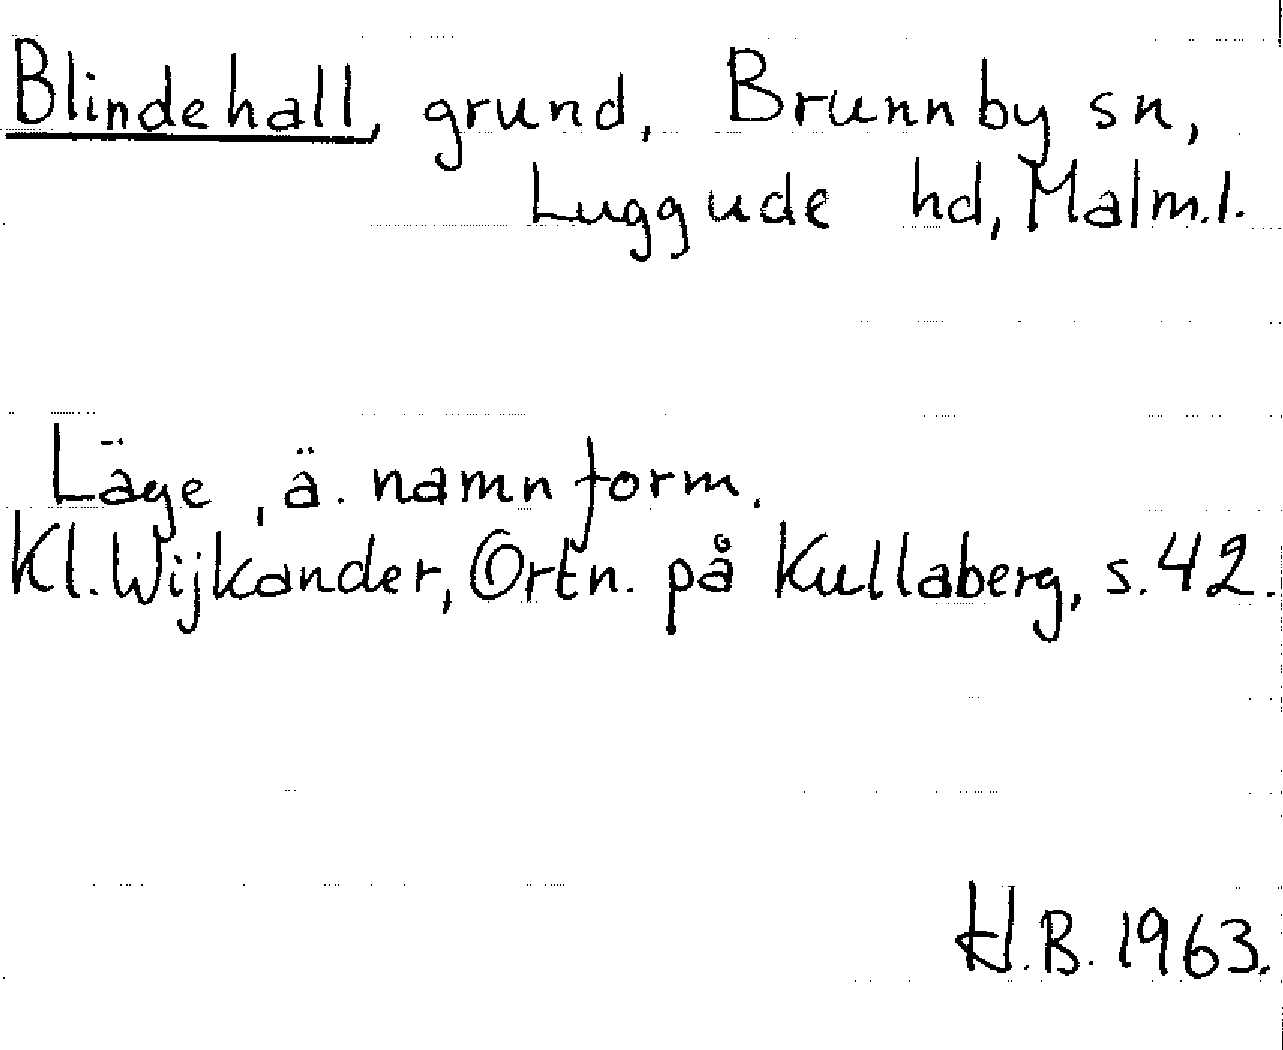 Blindehall, grund, Brunnby sn,
Luggude hd, Malm.l.
Läge, ä. namnform.
Kl. Wijkander, Ortn. på Kullaberg, s. 42.
H.B. 1963.